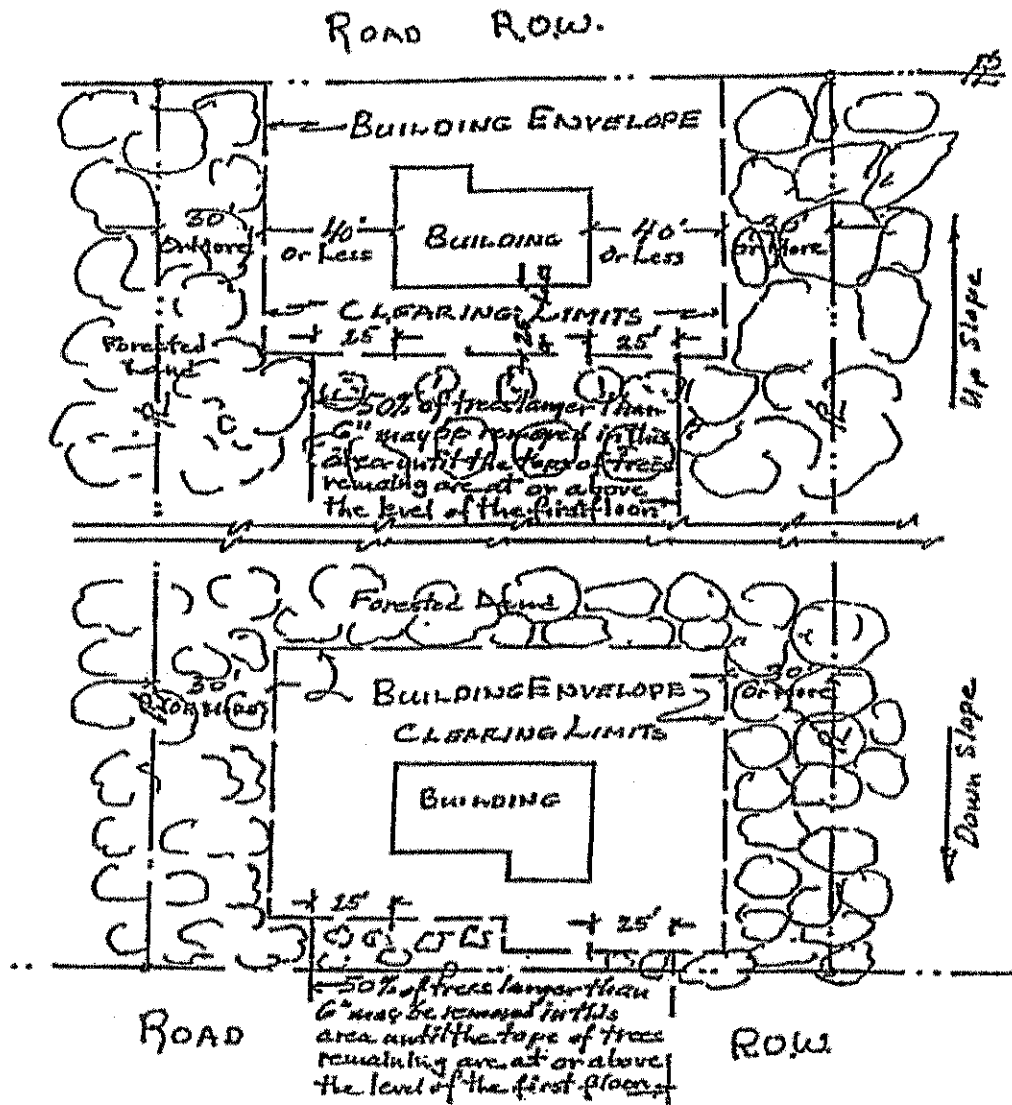 ROAD R.O.W.
BUILDING ENVELOPE
30'
Or More
40'
Or Less
BUILDING
40'
Or Less
30'
Or More
Up Slope
CLEARING LIMITS
25'
25'
25'
Forested
Land
50% of trees larger than
6" may be removed in this
area until the tops of trees
remaing are at or above
the level of the first floor
Forested Land
30'
Or More
BUILDING ENVELOPE
CLEARING LIMITS
30'
Or More
BUILDING
Down Slope
25'
25'
50% of trees larger than
6" may be removed in this
area until the tops of trees
remaining are at or above
the level of the first floor
ROAD R.O.W.